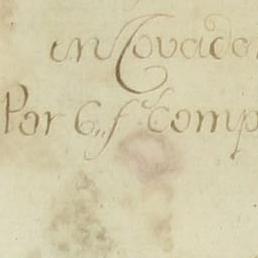 en Covada
Par G,, f.t Comp